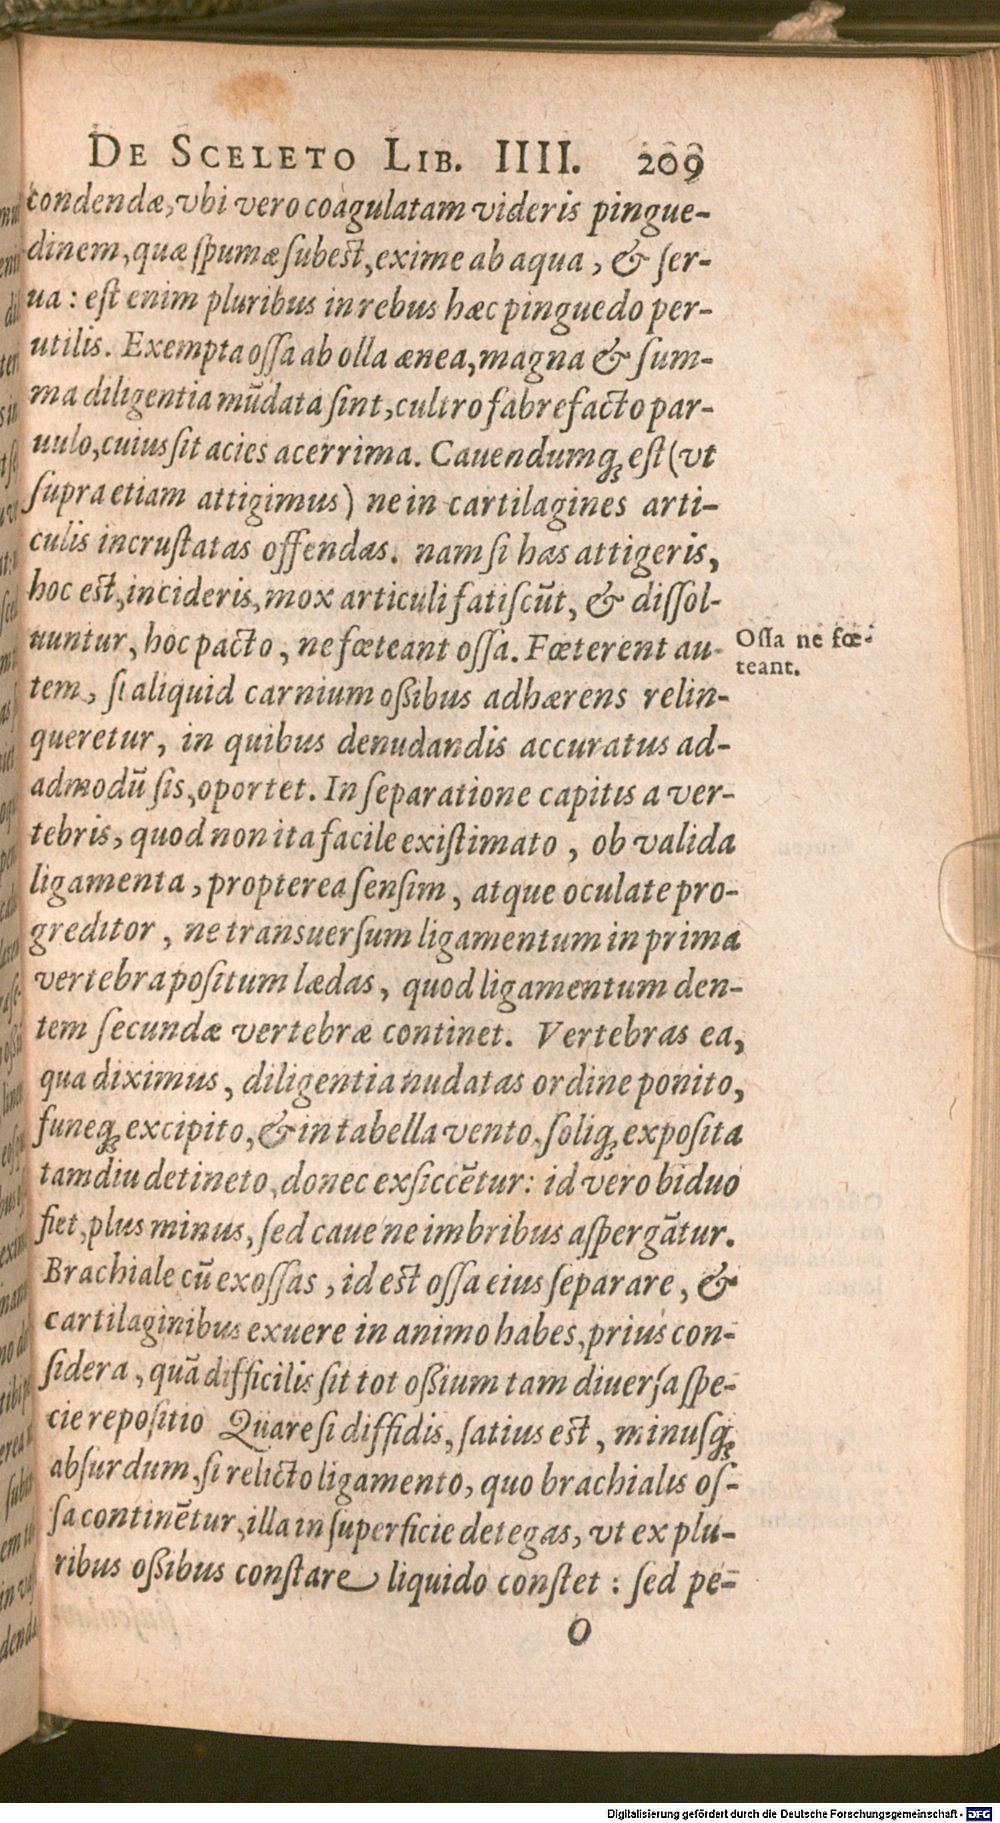 DE SCELETO LIB. IIII. 209
condendæ, vbi vero coagulatam videris pingue-
dinem, quæ ſpumæ ſubest, exime ab aqua, & ſer-
ua : eſt enim pluribus in rebus hæc pinguedo per-
utilis. Exempta oſſa ab olla ænea, magna & ſum-
ma diligentia mũdata ſint, cultro fabrefacto par-
uulo, cuius ſit acies acerrima. Cauendumq; eſt (vt
ſupra etiam attigimus) ne in cartilagines arti-
culis incruſtatas offendas. nam ſi has attigeris,
hoc est, incideris, mox articuli fatiſcũt, & diſſol-
uuntur, hoc pacto, ne fœteant oſſa. Fœterent au-
Oſſa ne fœ-
teant.
tem, ſi aliquid carnium oßibus adhærens relin-
queretur, in quibus denudandis accuratus ad-
admodũ ſis, oportet. In ſeparatione capitis a ver-
tebris, quod non ita facile exiſtimato, ob valida
ligamenta, propterea ſenſim, atque oculate pro-
greditor, ne transuerſum ligamentum in prima
vertebra poſitum lædas, quod ligamentum den-
tem ſecundæ vertebræ continet. Vertebras ea,
qua diximus, diligentia nudatas ordine ponito,
funeq; excipito, & in tabella vento, ſoliq; expoſita
tamdiu detineto, donec exſiccẽtur: id vero biduo
fiet, plus minus, ſed caue ne imbribus aſpergãtur.
Brachiale cũ exoſſas, id est oſſa eius ſeparare, &
cartilaginibus exuere in animo habes, prius con-
ſidera, quã difficilis ſit tot oßium tam diuerſa ſpe-
cie repoſitio Quare ſi diffidis, ſatius est, minuſq;
abſurdum, ſi relicto ligamento, quo brachialis oſ-
ſa continẽtur, illa in ſuperficie detegas, vt ex plu-
ribus oßibus conſtare liquido conſtet : ſed pe-
O
Digitalisierung gefördert durch die Deutsche Forschungsgemeinschaft - DFG